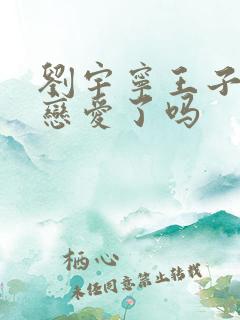 劉宇寧王子
戀愛了吗
栖心
未经同意禁止转载